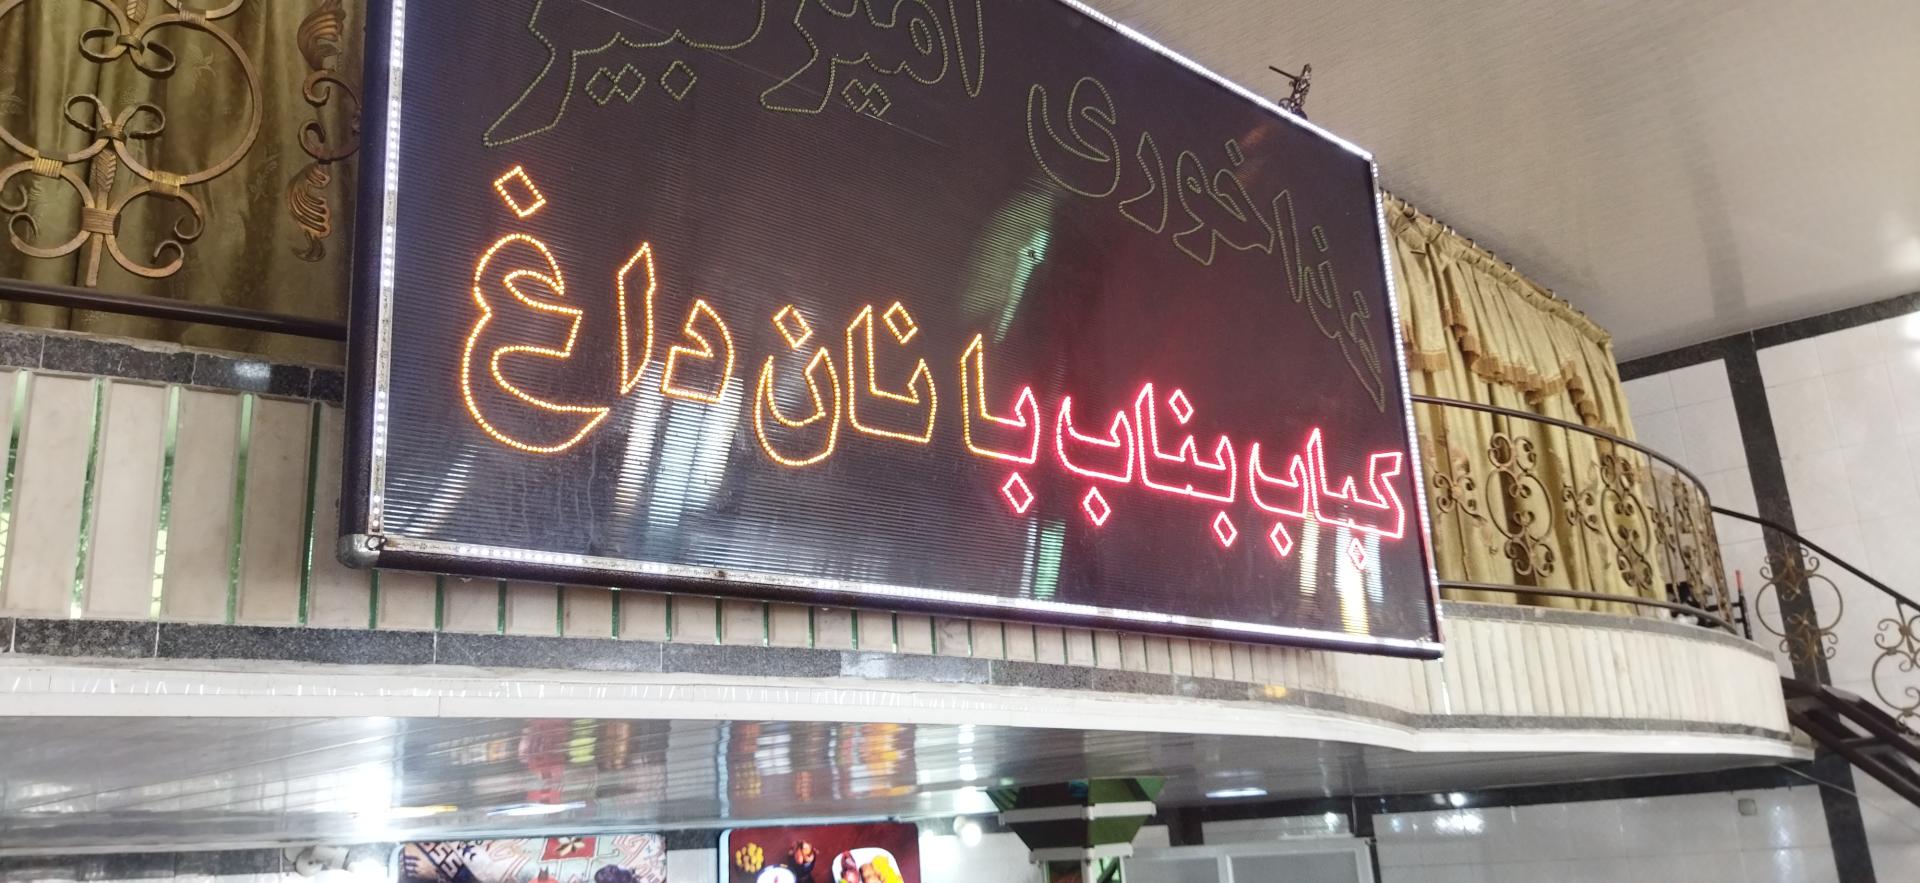 غذاخوری امیر کبیر
کباب بناب با نان داغ